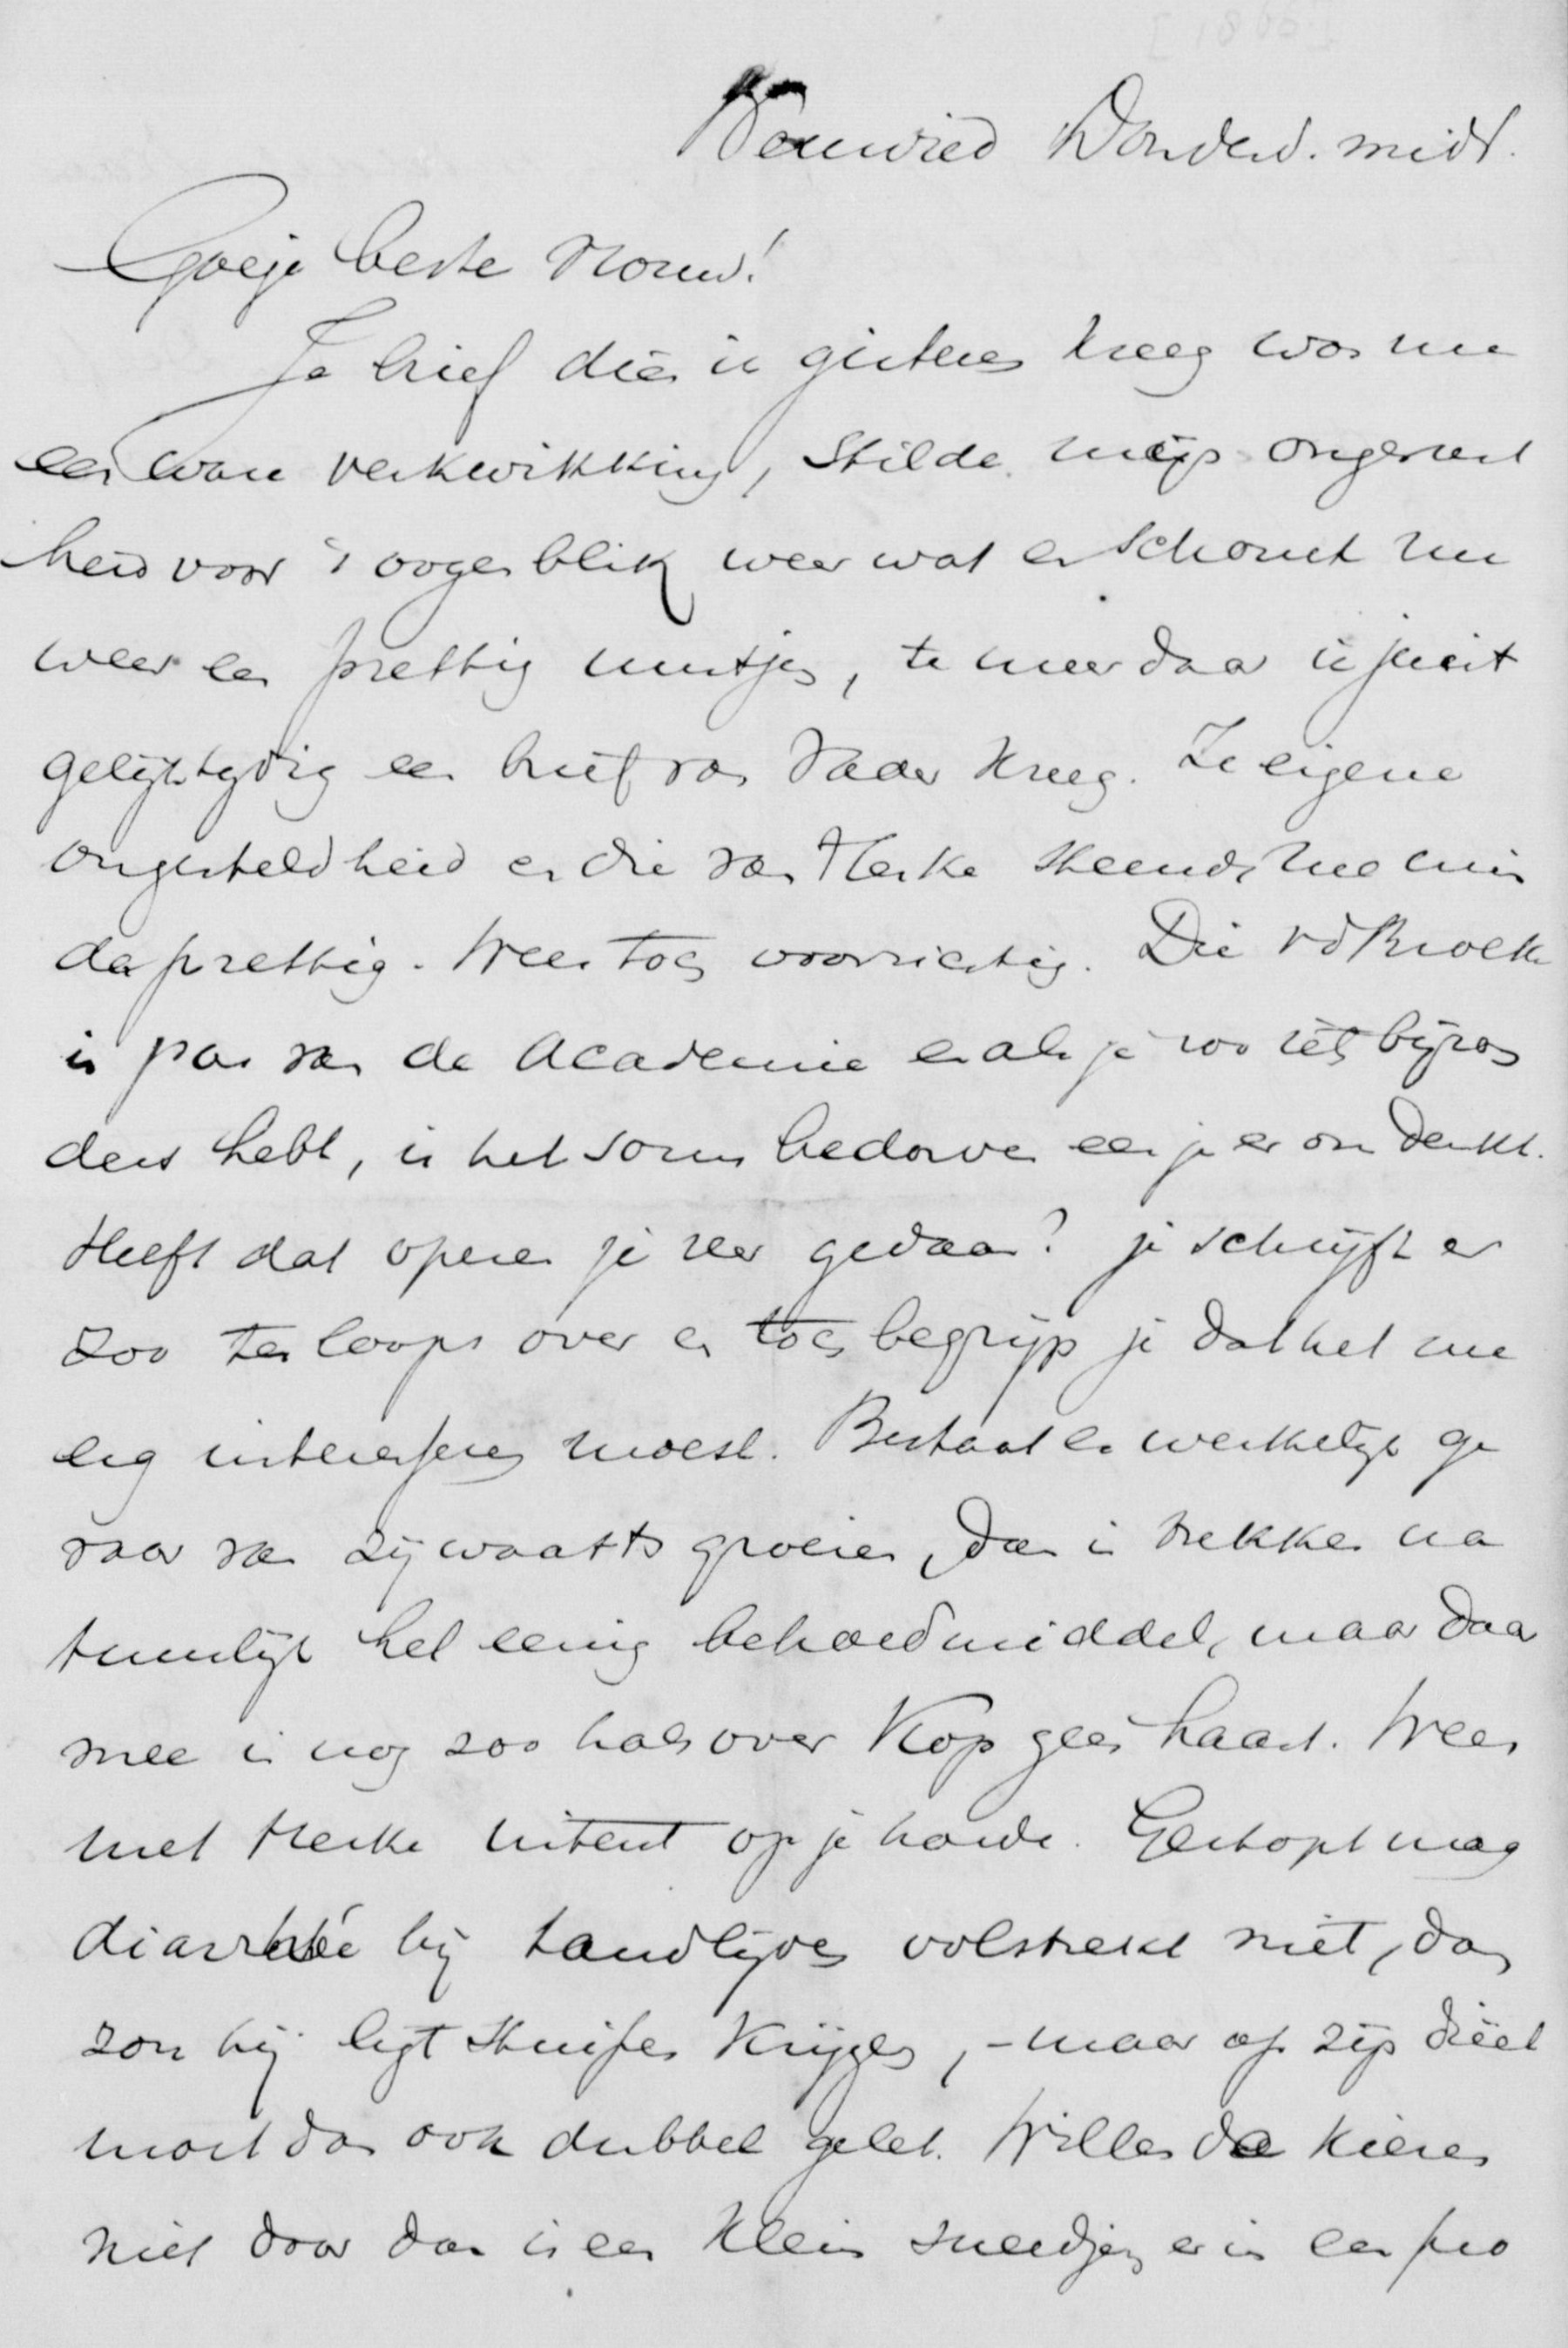 [1865]
Neuwied Donderd. midd.
Goeje beste Vrouw!
Je brief dien ik gisteren kreeg was me
een ware verkwikking, stilde mijn ongerust
heid voor 't oogenblik weer wat en schonk me
weer een prettig uurtje, te meer daar ik juist
gelijktydig een brief van Vader kreeg. Je eigene
ongesteldheid en die van Herke stemde me min
der prettig. Wees toch voorzichtig. Die vd Broek
is pas van de Academie en als je zoo iets byzon
ders hebt, is het soms bedorven eer je er om denkt.
Heeft dat openen je zeer gedaan? je schrijft er
zoo ter loops over en toch begrijp je dat het me
erg interesseren moest. Bestaat er werkelijk ge
vaar van zijwaarts groeien, dan is trekken na
tuurlijk het eenig behoedmiddel, maar daar
mee is nog zoo hals over kop geen haast. Wees
met Herke intent op je hoede. Gestopt mag
diarrhée bij tandlijden volstrekt niet, dan
zou hij ligt stuipen krijgen, - maar op zijn diëet
moet dan ook dubbel gelet. Willen de kiezen
niet door dan is een klein sneedje er in een pro